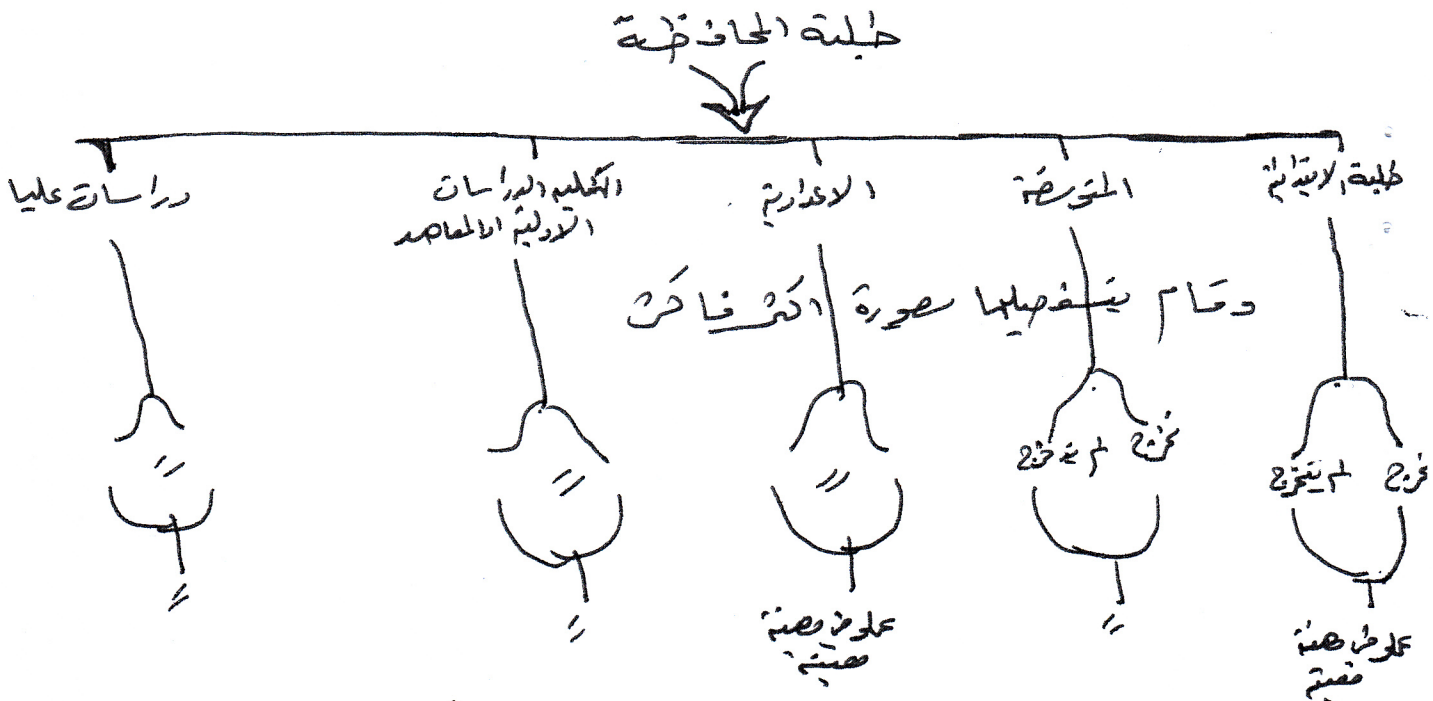 طلبة المحافظة
طلبة الابتدائية
المتوسطة
الاعدادية
الكلية الدراسات
الاولية او المعاهد
دراسات عليا
وقام بتفصيلها بصورة اكثر فاكثر
تخرج
لم يتخرج
تخرج
لم يتخرج
〃
〃
〃
عملو في مهنة
معينة
〃
عملو في مهنة
معينة
〃
〃